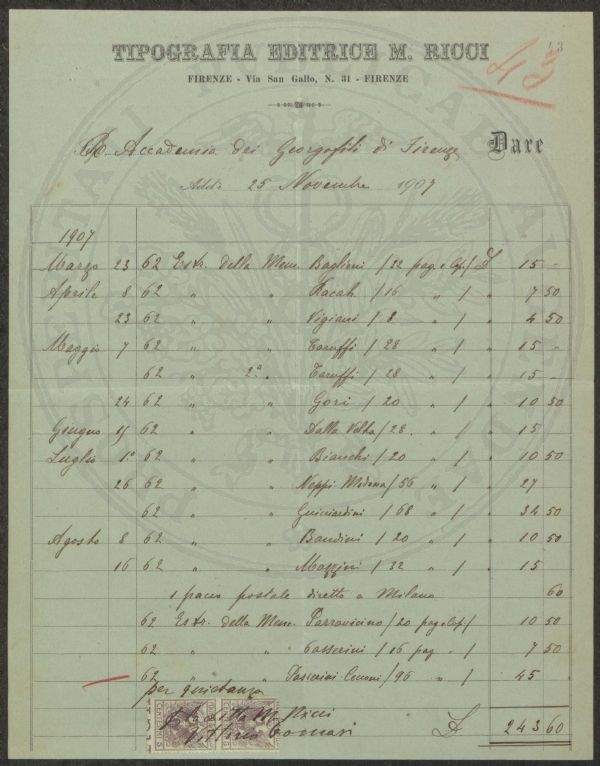 43
TIPOGRAFIA EDITRICE M. RICCI
43
FIRENZE - Via San Gallo, N. 31 - FIRENZE
R. Accademia dei Georgofili di Firenze Dare
Addì 25 Novembre 1907
1907
Marzo 23 62 Estr. della Mem. Baglioni /32 pag. e Cop./ £ 15 -
Aprile 8 62 " " Racah /16 " / " 7 50
23 62 " " Vigiani /8 " / " 4 50
Maggio 7 62 " " Taruffi /28 " / " 15 -
62 " 2ª " Taruffi /28 " / " 15 -
24 62 " " Gori /20 " / " 10 50
Giugno 15 62 " " Dalla Volta /28 " / " 15
Luglio 1° 62 " " Bianchi /20 " / " 10 50
26 62 " " Neppi Modona /56 " / " 27
62 " " Guicciardini /68 " / " 34 50
Agosto 8 62 " " Bandini /20 " / " 10 50
16 62 " " Mazzini /32 " / " 15
1 pacco postale diretto a Milano 60
62 Estr. della Mem. Parravicino /20 pag. e Cop./ 10 50
62 " " Passerini /16 pag. " / 7 50
62 " " Passerini /96 " / 45
per quietanza
p. la ditta M. Ricci
Tomasi
£ 243 60